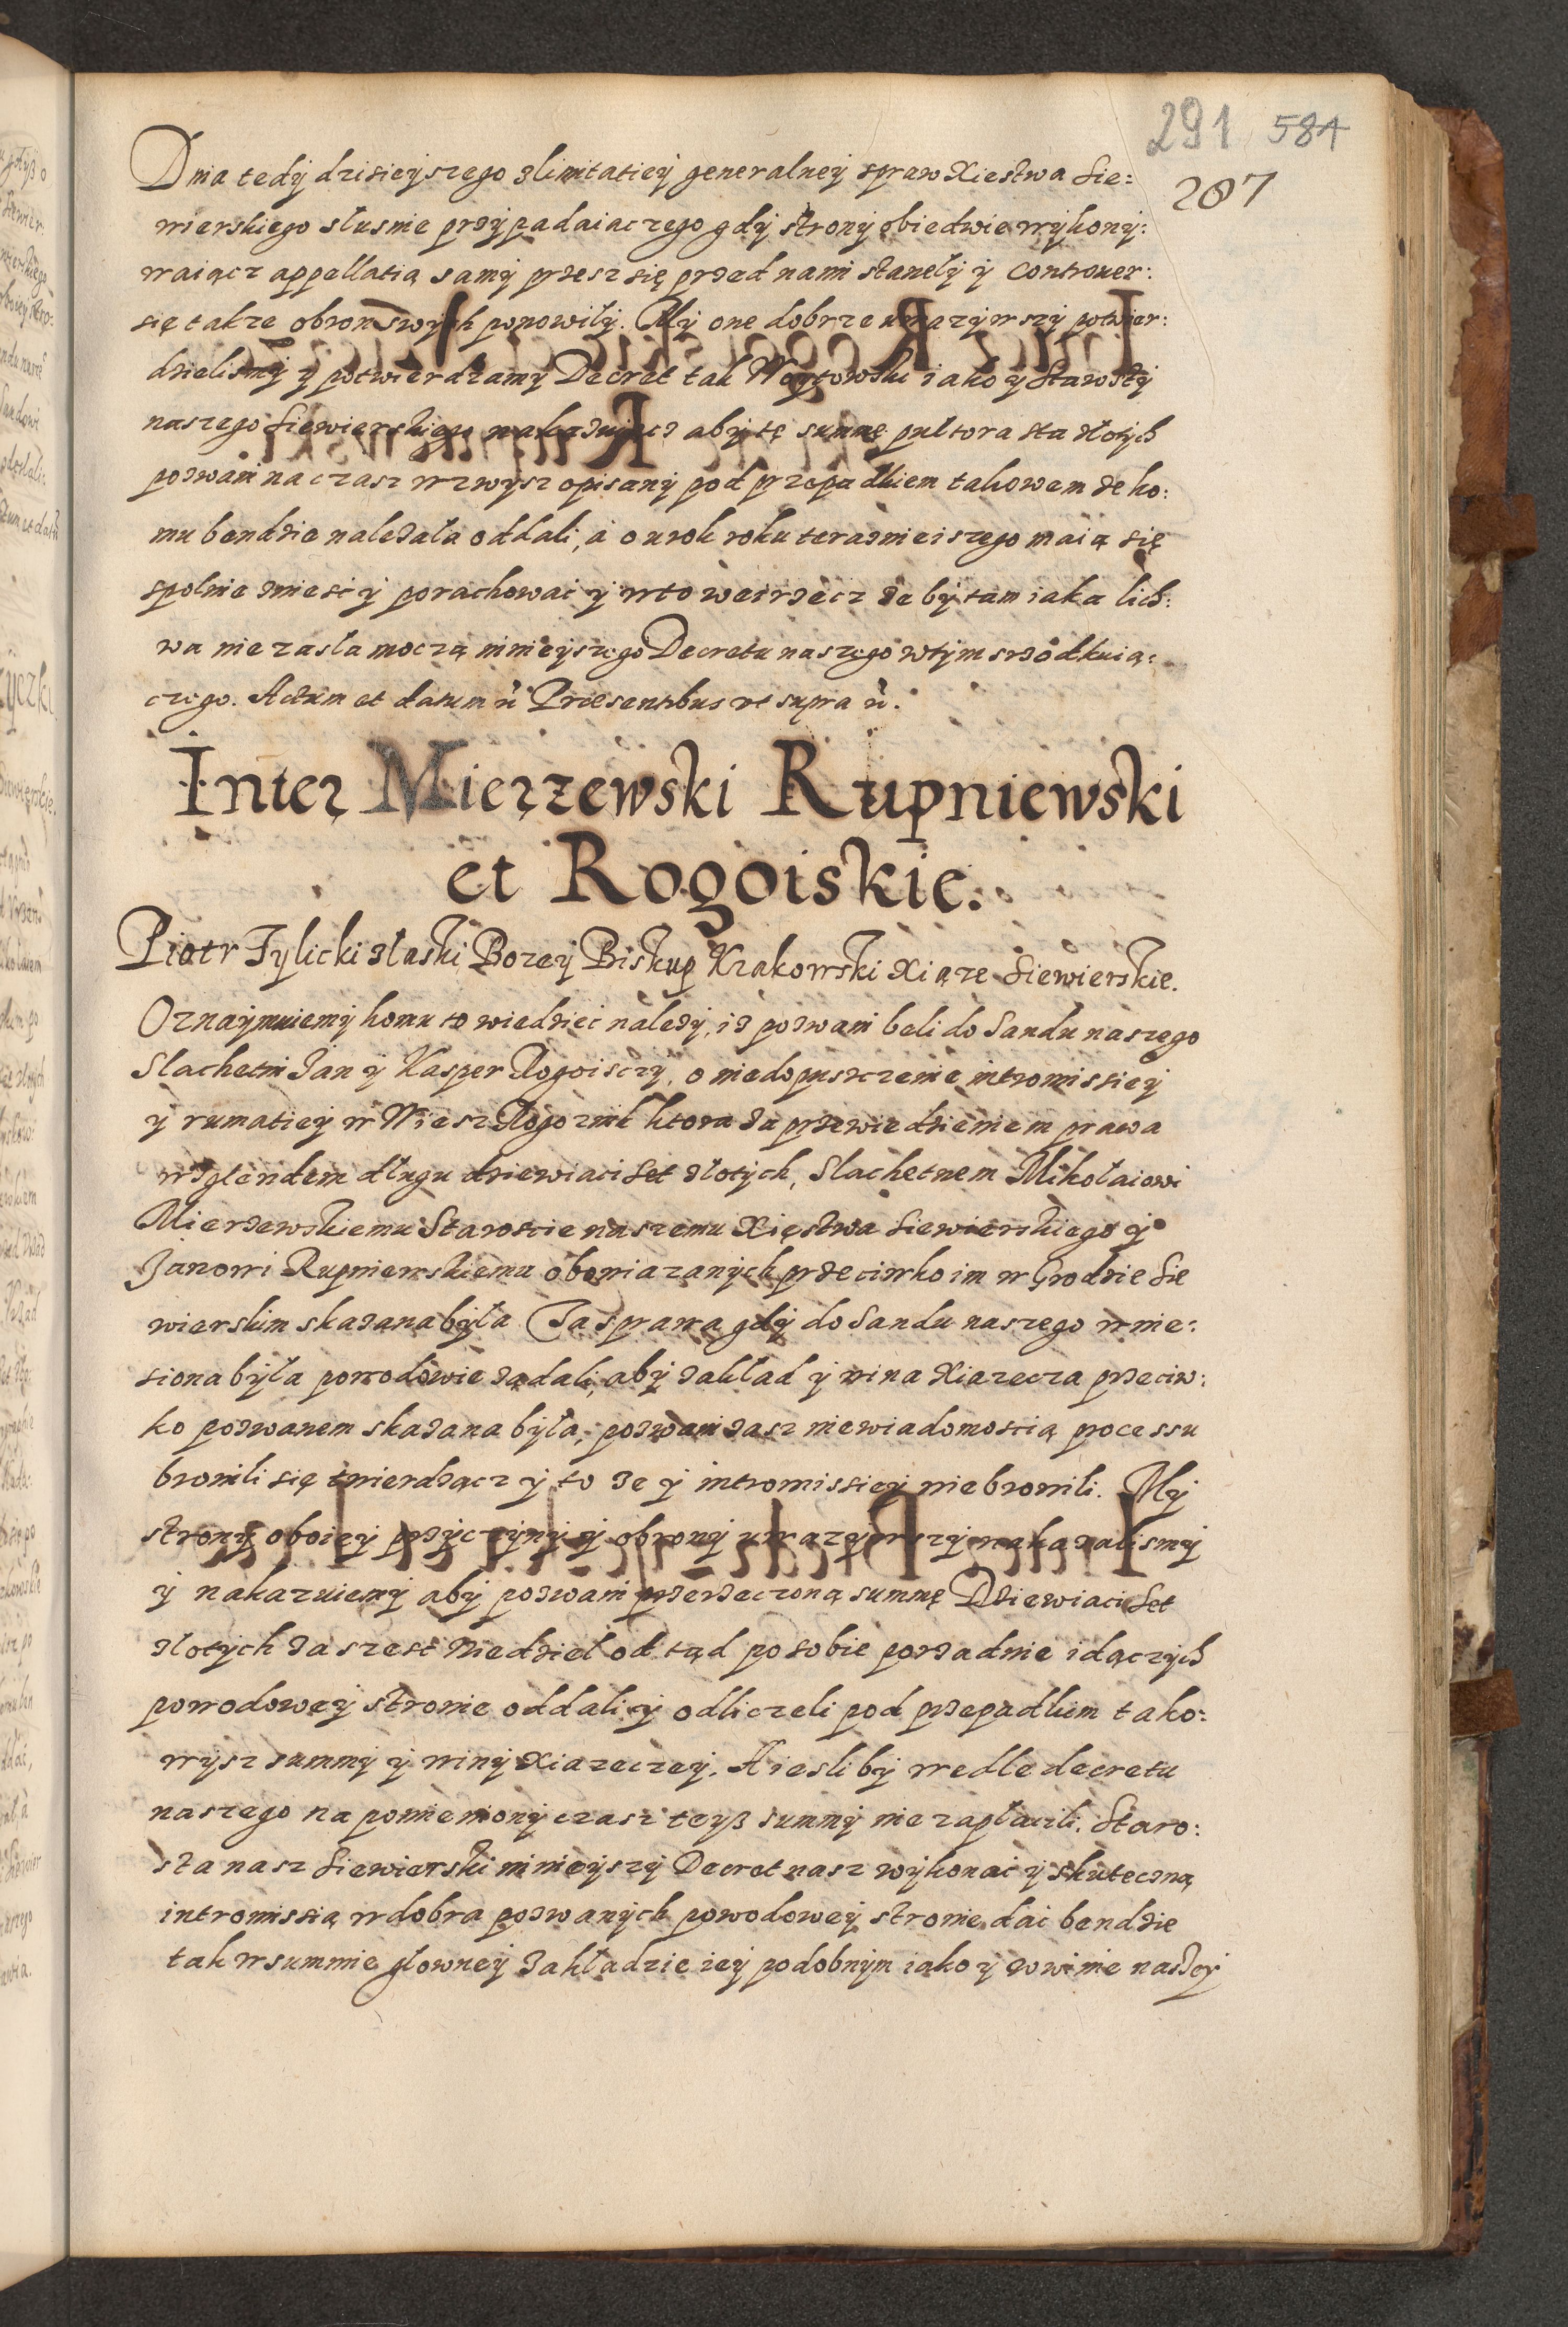 291 584
287
Dnia tedÿ dzisieÿszego zlimitatieÿ generalneÿ spraw Xiestwa Sie:
wierskiego slusnie przÿpadaiaczego gdÿ stronÿ obiedwie wÿkonÿ:
waiącz appellatią samÿ przesz się przed nami stanelÿ ÿ Controuer:
się takze obron swych ponowilÿ. Mÿ one dobrze uwazÿwszÿ potwier:
dzielismÿ ÿ potwierdzamÿ Decret tak Woÿtowski iako ÿ Starostÿ
naszego Siewierskiego nakazuiącz abÿ tę summę pultora sta złotÿch
pozwani na czasz wzwÿsz opisanÿ pod przepadkiem takowem ze ko:
mu bendzie nalezała oddali, a o urok roku terazmieiszego maią się
spolnie zniesc ÿ porachowac ÿ w to weirzecz ze bÿ tam iaka lich:
wa nie zasła moczą ninieÿszego Decretu naszego wtÿm srzodkuią:
czego. Actum et datum ÿ Præsentibus vt supra ÿ.
Inter Mierzewski Rupniewski
et Rogoiskie.
Piotr Tylicki złaski Bozeÿ Biskup Krakowski Xiąze Siewierskie.
Oznaÿmuiemÿ komu to wiedziec nalezÿ, iz pozwani beli do Sandu naszego
Slachetni Jan ÿ Kasper Rogoisczÿ, o niedopuszczenie intromissieÿ
ÿ rumatieÿ w Wiesz Rogoznik ktora za przewiedzieniem prawa
wzglendem długu dziewiaci set złotÿch, Slachetnem Mikołaiowi
Mierzewskiemu Staroscie naszemu Xięstwa Siewierskiego ÿ
Janowi Rupniewskiemu obowiazanÿch przeciwko im w Grodzie Sie
wierskim skazana bÿła Ta sprawa gdÿ do Sandu naszego wnie:
siona bÿła powodowie ządali, abÿ zakład ÿ wina Xiazecza przeciw:
ko pozwanem skazana bÿła, pozwani zasz niewiadomoscią processu
bronili się twierdzącz ÿ to ze ÿ intromissieÿ nie bronili. Mÿ
stronÿ oboieÿ przÿczÿnÿ ÿ obronÿ uwazÿwszÿ nakazalismÿ
ÿ nakazuiemÿ abÿ pozwani przerzeczoną summę Dziewiaci Set
złotÿch za szesc Niedziel od tąd po sobie porzadnie idączÿch
powodoweÿ stronie oddali ÿ odliczeli pod przepadkiem tako:
wÿsz summÿ ÿ winÿ Xiazeczeÿ. A iesli bÿ wedle decretu
naszego na pomienionÿ czasz teÿß summÿ nie zapłacili. Staro:
sta nasz Siewierski ninieÿszÿ Decret nasz wÿkonac ÿ skuteczną
intromissią w dobra pozwanÿch powodoweÿ stronie dac bendzie
tak w summie głowneÿ zakładzie ieÿ podobnÿm iako ÿ wwinie naszeÿ